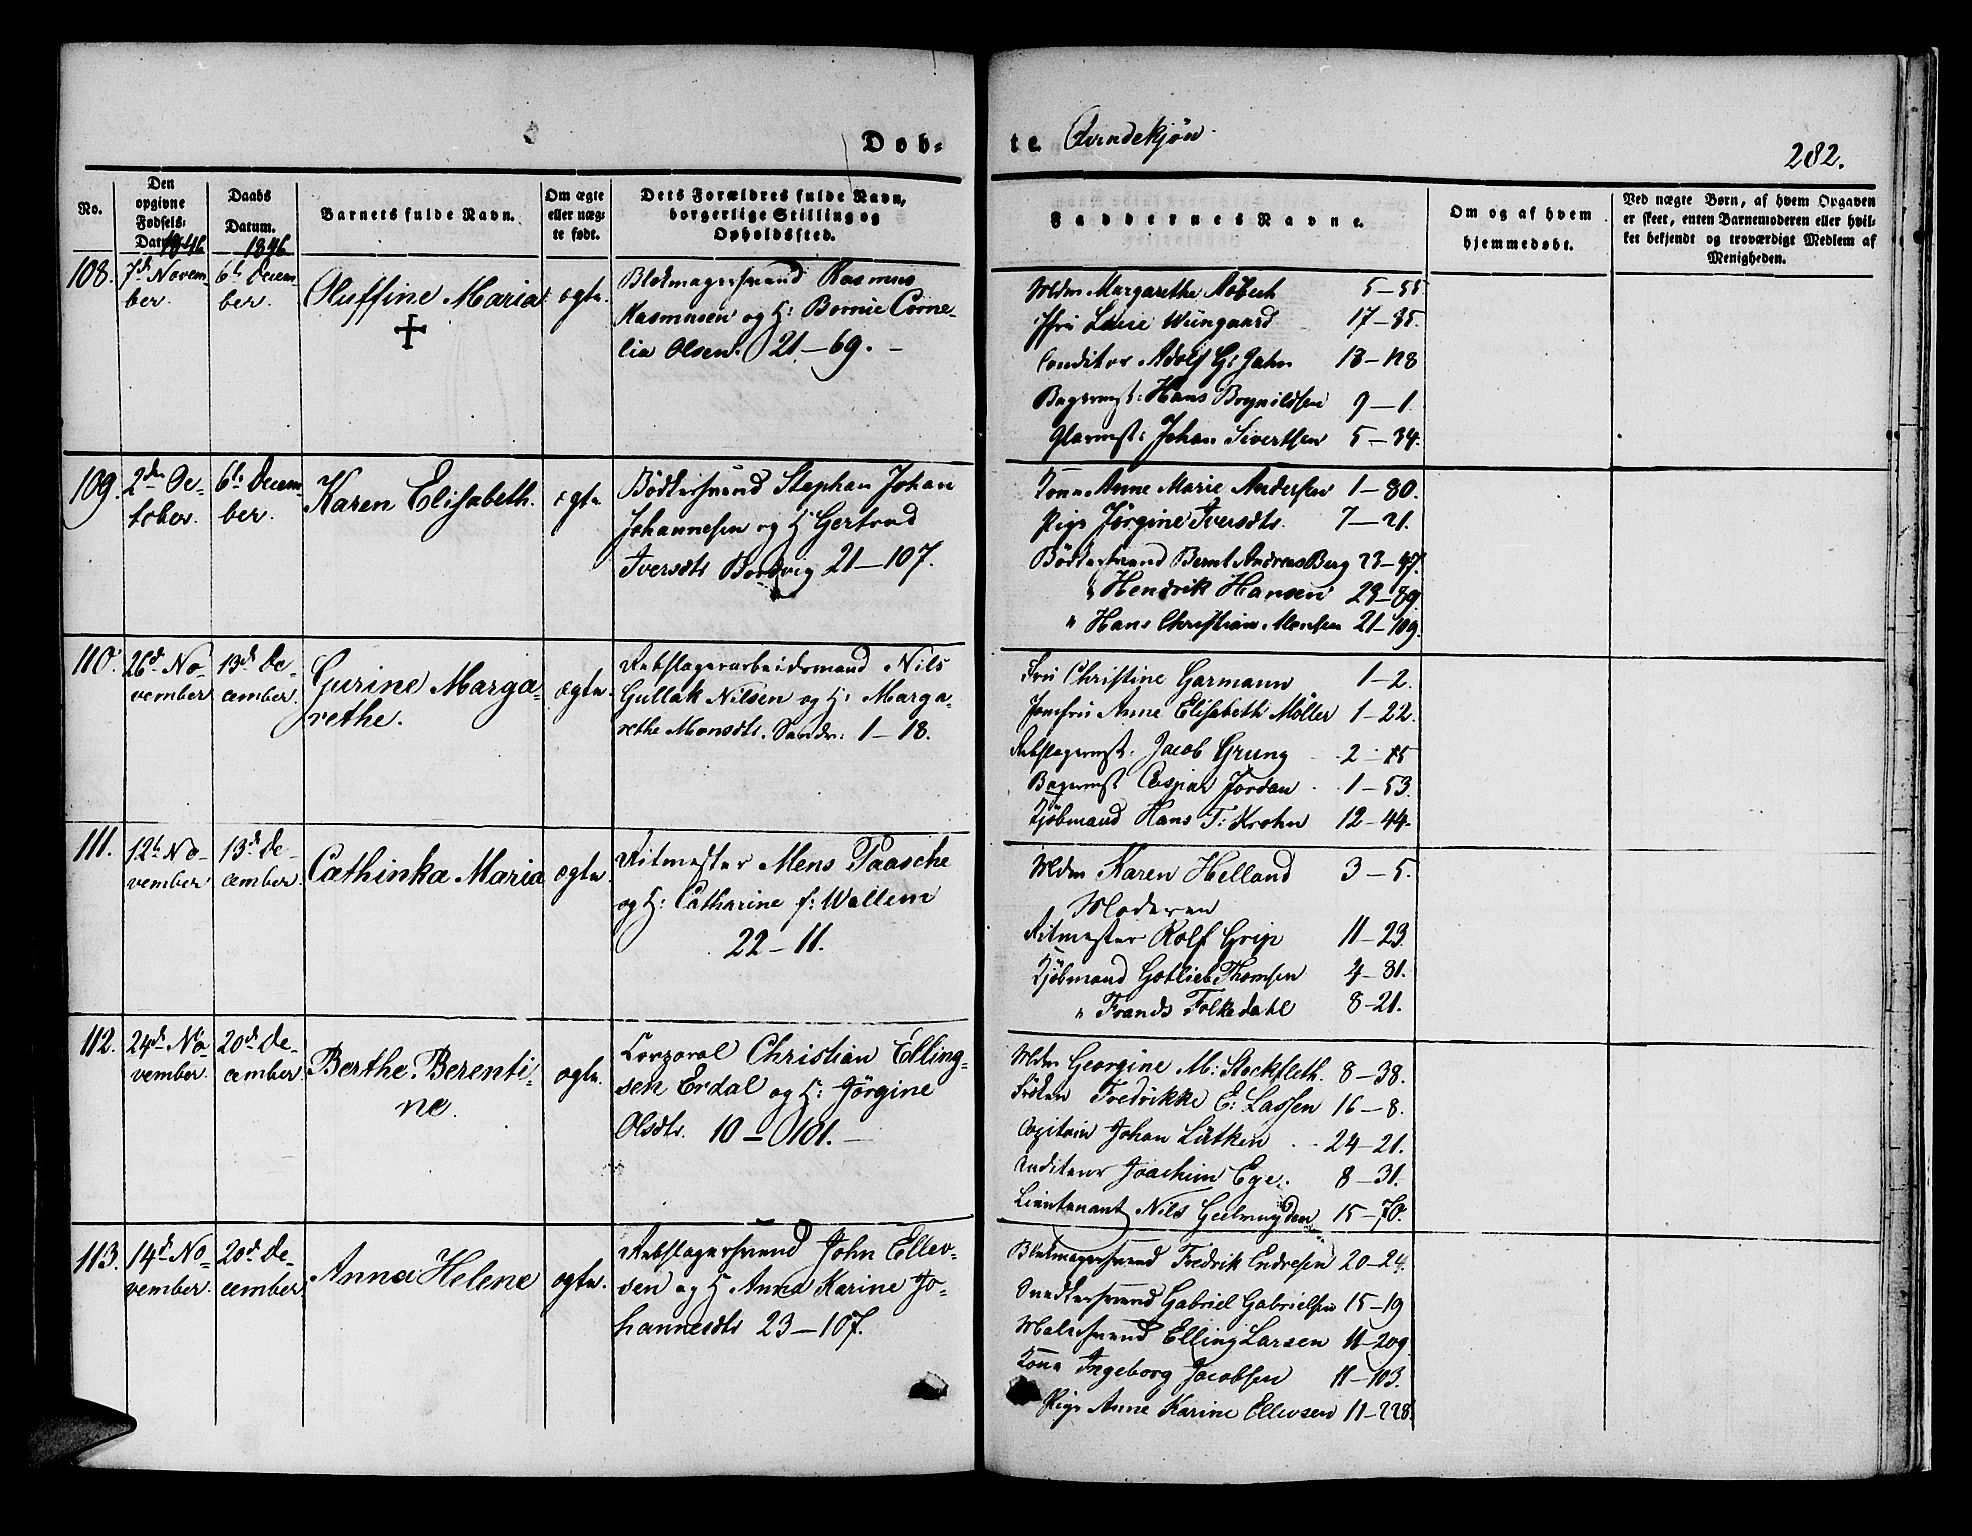 Døb-
te Qvindekjøn
282.
No.
Den opgivne Fødsels-Datum. 1846
Daabs Datum. 1846
Barnets fulde Navn.
Om ægte eller uægte født.
Dets Forældres fulde Navn, borgerlige Stilling og Opholdssted.
Faddernes Navne.
Om og af hvem hjemmedøbt.
Ved uægte Børn, af hvem Opgaven er skeet, enten Barnemoderen eller hvilket bekjendt og troværdigt Medlem af Menigheden.
108. 7de Novem-
ber.
6te Decem-
ber.
Oluffine Maria
ægte
Blokmagersvend Rasmus
Rasmusen og H: Corne-
lia Olsen. 21–69.
Mdm Margarethe 5–55
Jfru Wiingaard 17–35.
Conditor Adolf G: Jahn 13–128
Bagermst: Hans Brynildsen 9–1.
Glarmst: Johan Sivertsen 5–34.
109. 2den Oc-
tober.
6te Decem-
ber.
Karen Elisabeth.
ægte
Bødkersvend Stephan Johan
Johannesen og H: Gertrud
Iversdtr Bordvig 21–107.
Kone Anne Marie Andersen 1–80.
Pige Jørgine Iversdtr. 7–21.
Bødkersvend Bernt Andreas Berg 23–47.
" Hendrik Hansen 23–89.
" Hans Christian Monsen 21–109.
110. 26de No-
vember
13de De-
cember.
Gurine Marga-
rethe.
ægte
Rebslagerarbeidsmand Nils
Gullak Nilsen og H: Marga-
rethe Monsdtr. Sandv: 1–18.
Fru Christine Garmann 1–2.
Jomfru Anne Elisabeth Møller 1–22.
Rebslagermst. Jacob Grung 2–15
Bagermst Caspar Jordan 1–53.
Kjøbmand Hans T: Krohn 12–44.
111. 12te No-
vember
13de De-
cember.
Cathinka Maria
ægte
Ritmester Mens Paasche
og H: Catharine f: Wallem
22–11.
Mdm Karen Helland 3–5.
Moderen
Ritmester Rolf Grip 11–23.
Kjøbmand Gotlieb Thomsen 4–81.
" Frands Folkedahl 8–21.
112. 24de No-
vember.
20de De-
cember
Berthe Berenti-
ne.
ægte.
Corporal Christian Elling-
sen Erdal og H: Jørgine
Olsdtr. 10–101.
Mdm Georgine M: Stockfleth. 8–38.
Frøken Fredrikke E: Lassen 16–8.
Capitain Johan Lütken 24–21.
Auditeur Joachim Ege. 8–31.
Lieutenant Nils Geelmuyden 15–70.
113. 14de No-
vember.
20de De-
cember
Anna Helene
ægte.
Rebslagersvend John Ellev-
sen og H Anna Karine Jo-
hannesdtr 23–107.
Blokmagersvend Fredrik Endresen 20–24.
Snedkersvend Gabriel Gabrielsen 15–19
Malersvend Elling Larsen 11–209.
Kone Ingeborg Jacobsen 11–103.
Pige Anne Karine Ellevsen 11–228.